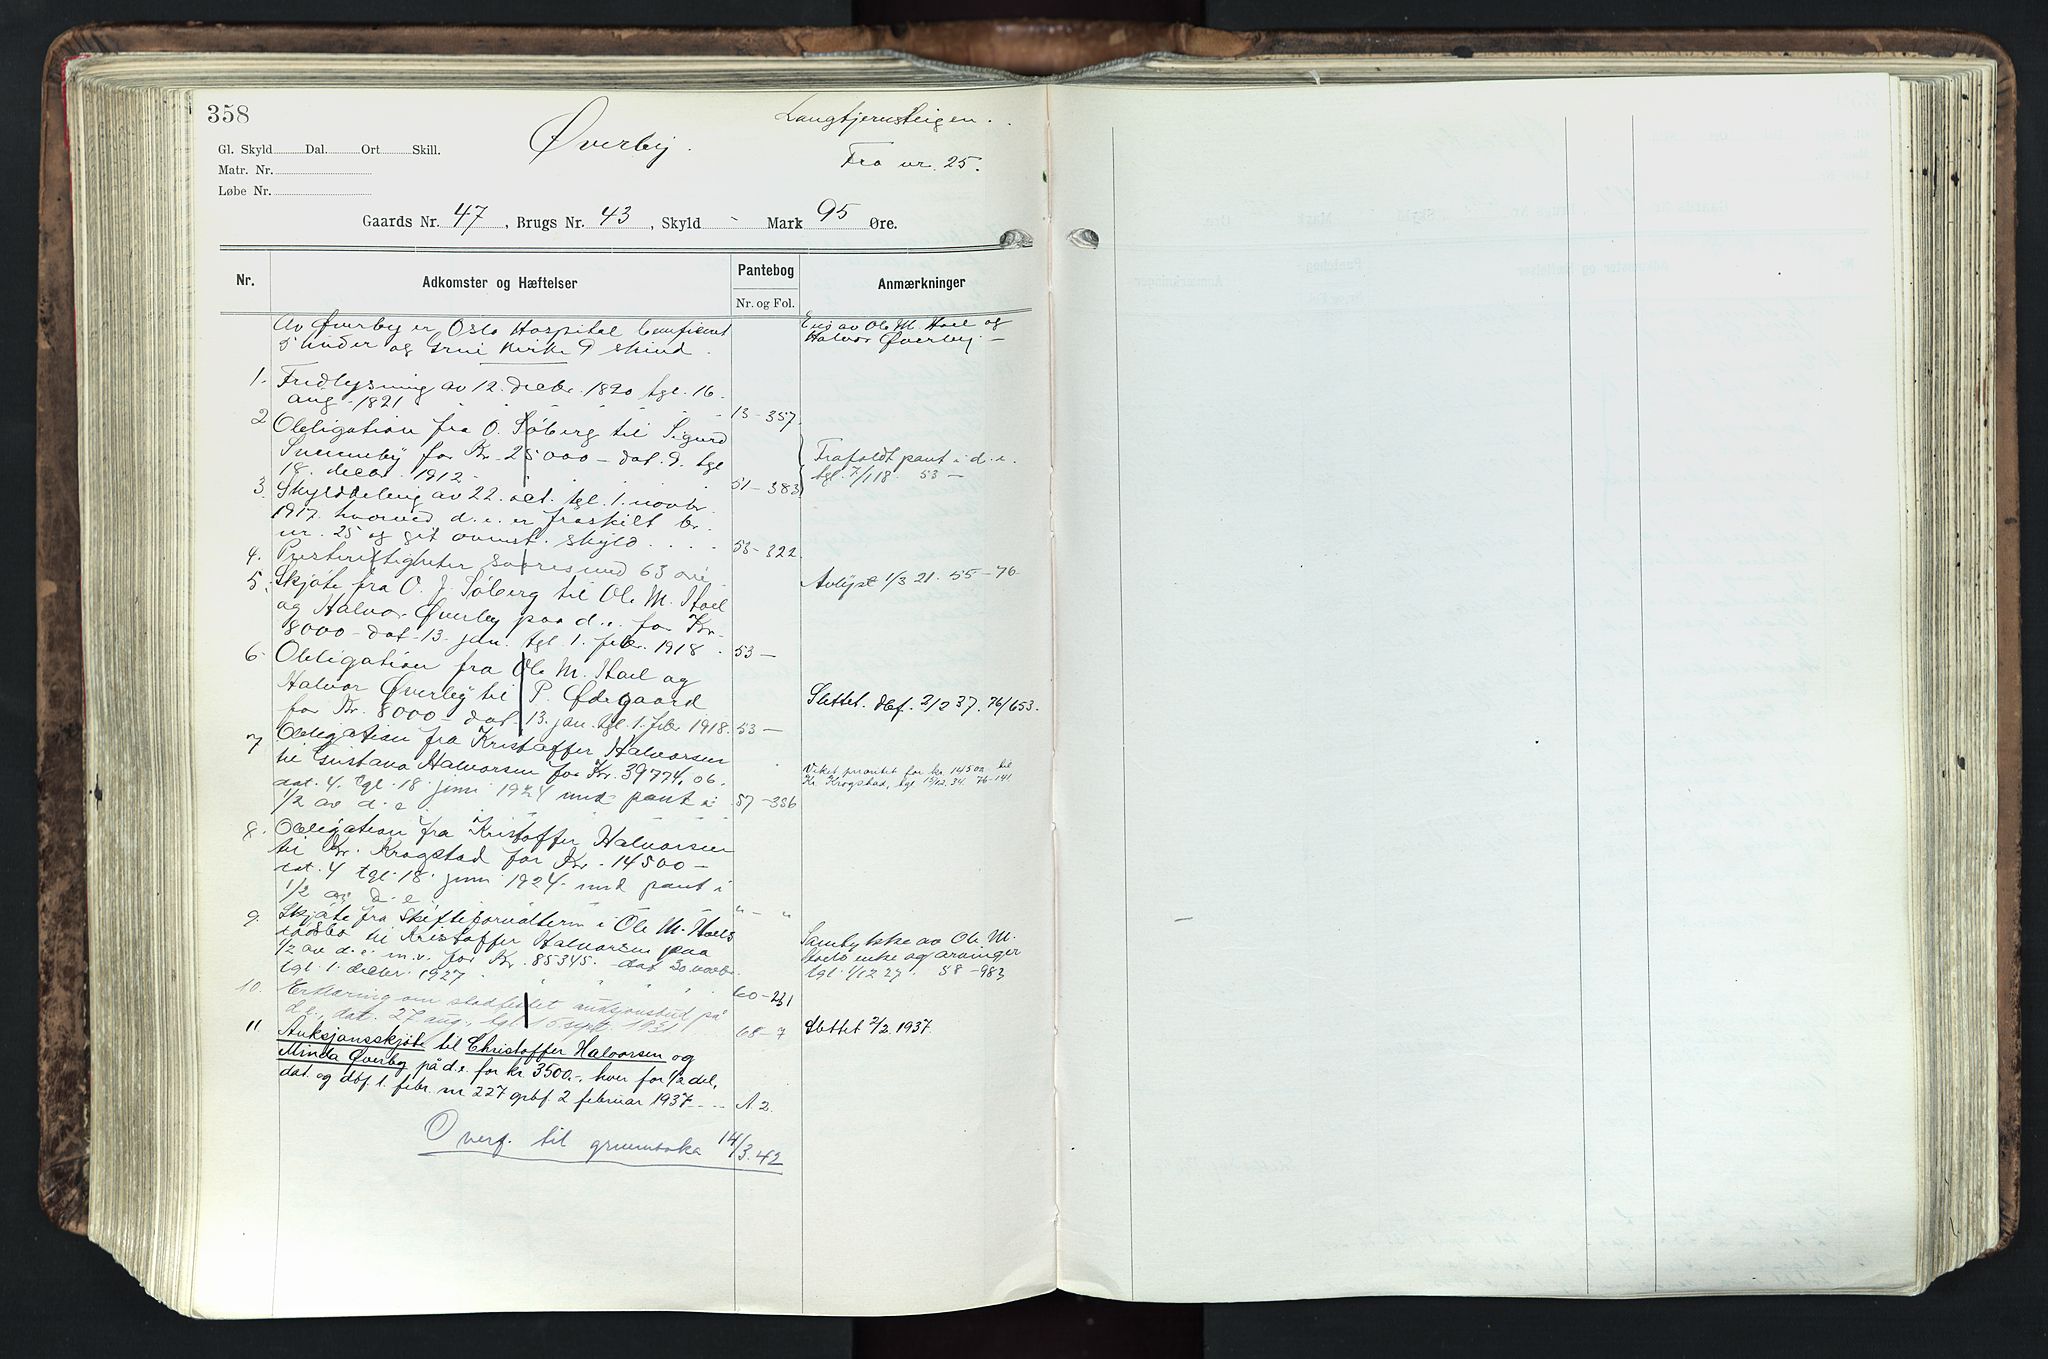 358
Øverby.
Langtjernsteigen.
Fra nr. 25.
Gl. Skyld Dal. Ort Skill.
Matr. Nr.
Løbe Nr.
Gaards Nr. 47, Brugs Nr. 43, Skyld - Mark 95 Øre.
Nr.
Adkomster og Hæftelser
Pantebog
Nr. og Fol.
Anmærkninger
Av Øverby er Oslo Hospital beneficert
5 huder og Grue Kirke 9 skind.
Eies av Ole M. Hoel og
Halvor Øverby -
1. Fredlysning av 12. decbr. 1820 tgl. 16.
aug. 1821 13-357
2 Obligation fra O. Søberg til Sigurd
for Kr. 25000 - dat. 9. tgl
18. decbr. 1912. 51-383
Frafaldt pant i d. e.
tgl. 7/1 18. 53 -
3. Skylddeling av 22. okt. tgl. 1. novbr.
1917. hvorved d. e. er fraskilt br.
nr. 25 og git ovenst. skyld. 53-322
4. Presterettigheter svares med 63 øre
Avlyst 1/3 21. 55-76
5. Skjøte fra O. J. Søberg til Ole M. Hoel
og Halvor Øverby paa d. e. for Kr.
8000 - dat. 13. jan. tgl. 1. febr. 1918. 53 -
6. Obligation fra Ole M. Hoel og
Halvor Øverby til P. Ødegaard
for Kr. 8000 - dat. 13. jan. tgl. 1. febr 1918. 53 -
Slettet. dbf. 2/2 37. 76/653.
7 Obligation fra Kristoffer Halvorsen
til Gustava Halvorsen for Kr. 39774,06.
dat. 4. tgl. 18 juni 1924 med pant i
1/2 av d. e. 57-336
Veket prioritet for kr. 14500 til
Kr. Krogstad, tgl 15/12. 34. 76-141.
8. Obligation fra Kristoffer Halvorsen
til Kr. Krogstad for Kr. 14500 -
dat. 4 tgl. 18. juni 1924. med pant i
1/2 av d. e. " - "
9. Skjøte fra Skifteforvalteren i Ole M. Hoels
dødsbo til Kristoffer Halvorsen paa
1/2 av d. e. m. v. for Kr. 85345. dat 30 novbr.
tgl. 1. decbr. 1927. 60-231
Samtykke av Ole M.
Hoels enke og arvinger
tgl. 1/12 27. 58-983
10. Erklæring om stadfestet auksjonsbud på
d. e., dat. 27 aug., tgl. 15 sept. 1931 68-7
slettet 2/2. 1937.
11 Auksjonsskjøte til Christoffer Halvorsen og
Minda Øverby på d. e. for kr. 3500.-, hver for 1/2 del,
dat. og dbf. 1. febr. nr 227 grbf. 2 februar 1937 A. 2.
Overf. til grunnboka 14/3.42